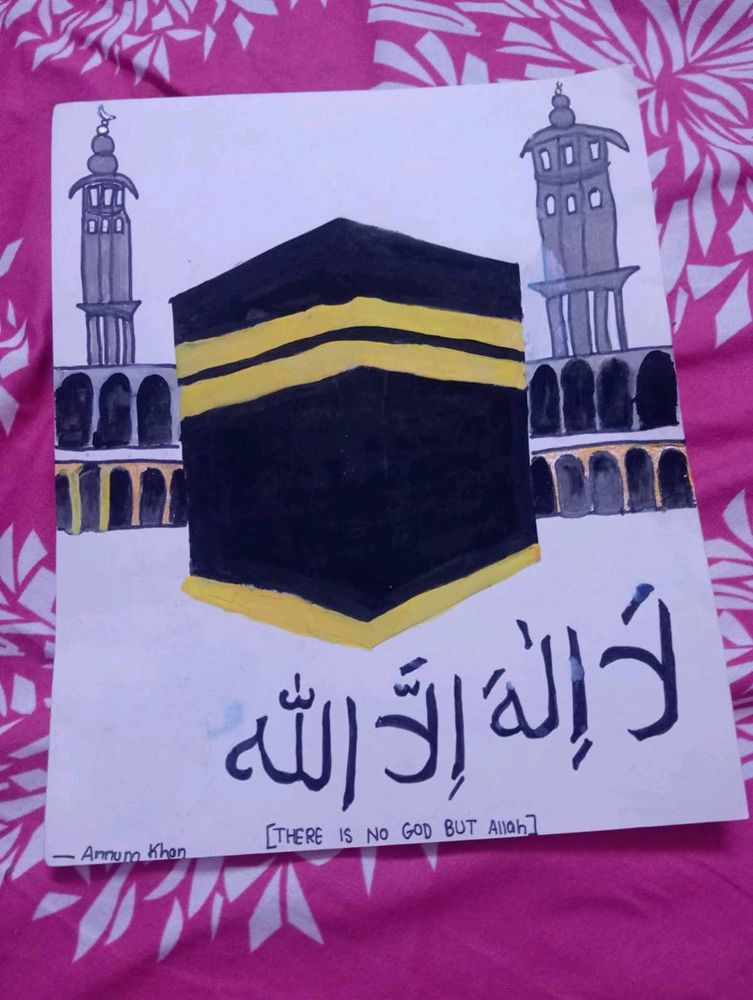 لَا إِلٰهَ إِلَّا اللّٰه
[THERE IS NO GOD BUT Allah]
— Annum Khan